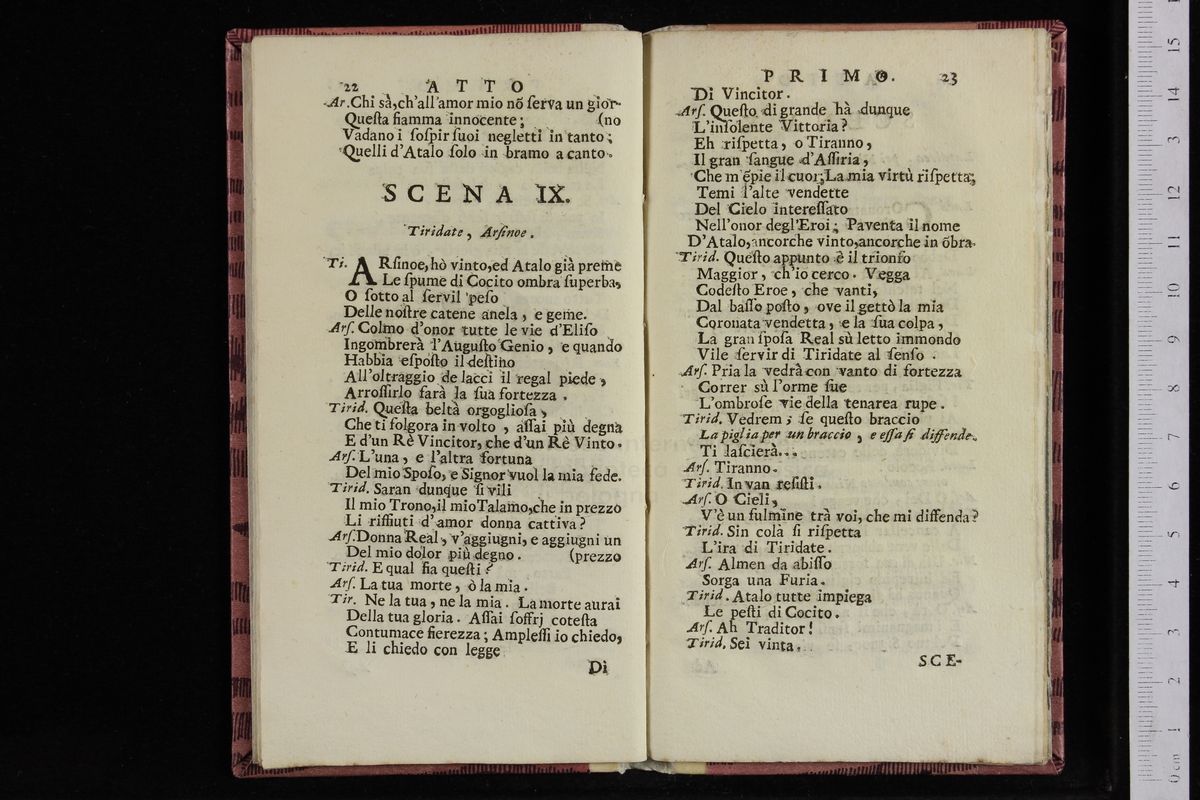 22 ATTO
Ar. Chi sà,ch'all'amor mio nõ ſerva un gior-
Queſta fiamma innocente; (no
Vadano i ſoſpir ſuoi negletti in tanto;
Quelli d'Atalo ſolo in bramo a canto.
SCENA IX.
Tiridate, Arſinoe.
Ti. ARſinoe,hò vinto,ed Atalo già preme
Le ſpume di Cocito ombra ſuperba,
O ſotto al ſervil peſo
Delle noſtre catene anela, e geme.
Arſ. Colmo d'onor tutte le vie d'Eliſo
Ingombrerà l'Auguſto Genio, e quando
Habbia eſpoſto il deſtino
All'oltraggio de lacci il regal piede,
Arroſſirlo farà la ſua fortezza.
Tirid. Queſta beltà orgoglioſa,
Che ti folgora in volto, aſſai più degna
E d'un Rè Vincitor, che d'un Rè Vinto.
Arſ. L'una, e l'altra fortuna
Del mio Spoſo, e Signor vuol la mia fede.
Tirid. Saran dunque ſi vili
Il mio Trono,il mio Talamo,che in prezzo
Li riffiuti d'amor donna cattiva?
Arſ. Donna Real, v'aggiugni, e aggiugni un
Del mio dolor più degno. (prezzo
Tirid. E qual fia queſti?
Arſ. La tua morte, ò la mia.
Tir. Ne la tua, ne la mia. La morte aurai
Della tua gloria. Aſſai ſoffrj coteſta
Contumace fierezza; Ampleſſi io chiedo,
E li chiedo con legge
Di
PRIMO. 23
Di Vincitor.
Arſ. Queſto di grande hà dunque
L'inſolente Vittoria?
Eh riſpetta, o Tiranno,
Il gran ſangue d'Aſſiria,
Che m'ẽpie il cuor;La mia virtù riſpetta;
Temi l'alte vendette
Del Cielo intereſſato
Nell'onor degl'Eroi; Paventa il nome
D'Atalo,ancorche vinto,ancorche in õbra.
Tirid. Queſto appunto è il trionfo
Maggior, ch'io cerco. Vegga
Codeſto Eroe, che vanti,
Dal baſſo poſto, ove il gettò la mia
Coronata vendetta, e la ſua colpa,
La gran ſpoſa Real sù letto immondo
Vile ſervir di Tiridate al ſenſo.
Arſ. Pria la vedrà con vanto di fortezza
Correr sù l'orme ſue
L'ombroſe vie della tenarea rupe.
Tirid. Vedrem; ſe queſto braccio
La piglia per un braccio, e eſſa ſi diffende.
Ti laſcierà...
Arſ. Tiranno.
Tirid. In van reſiſti.
Arſ. O Cieli,
V'è un fulmine trà voi, che mi diffenda?
Tirid. Sin colà ſi riſpetta
L'ira di Tiridate.
Arſ. Almen da abiſſo
Sorga una Furia.
Tirid. Atalo tutte impiega
Le peſti di Cocito.
Arſ. Ah Traditor!
Tirid. Sei vinta.
SCE-
0 cm 1 2 3 4 5 6 7 8 9 10 11 12 13 14 15